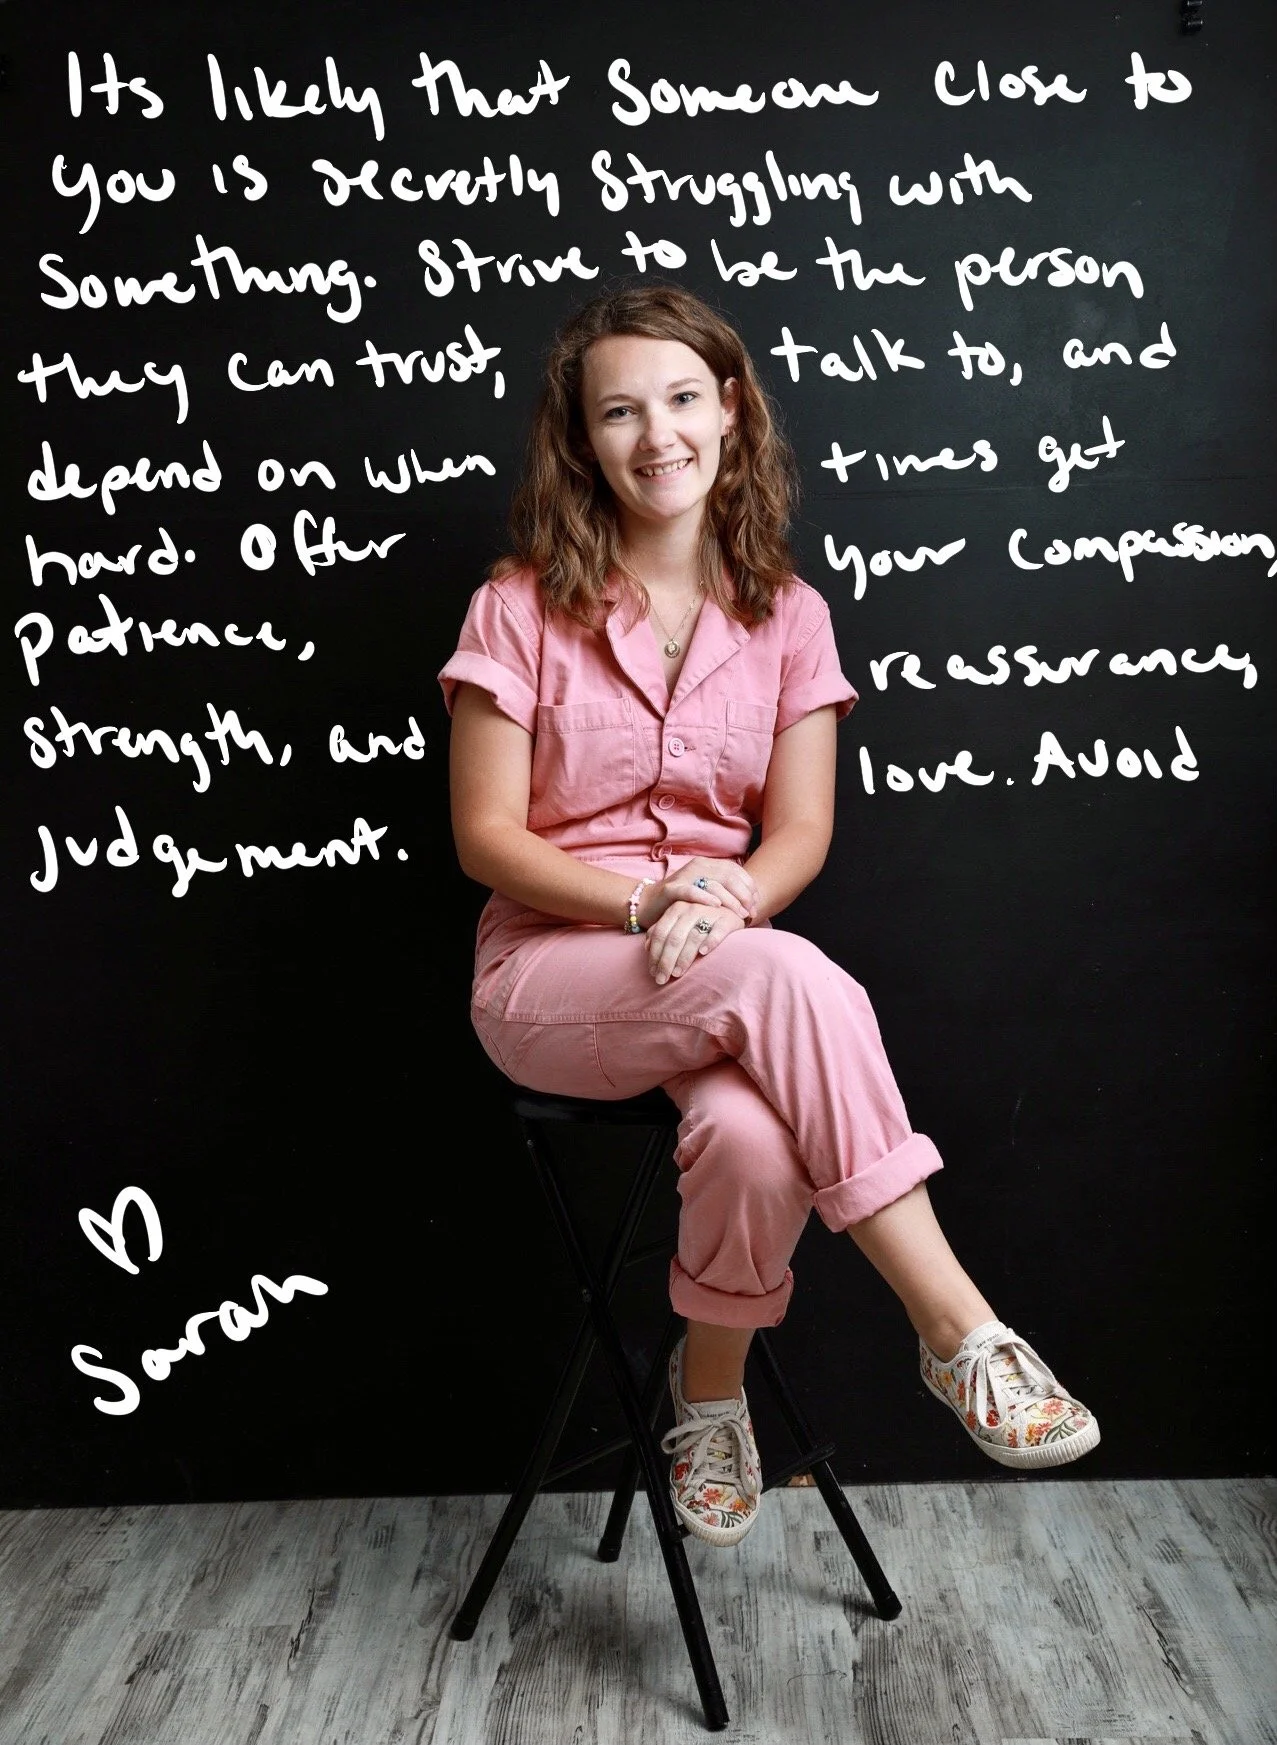 Its likely that someone close to
you is secretly struggling with
something. Strive to be the person
they can trust, talk to, and
depend on when times get
hard. Offer your compassion,
patience, reassurance,
strength, and love. Avoid
judgement.
Sarah